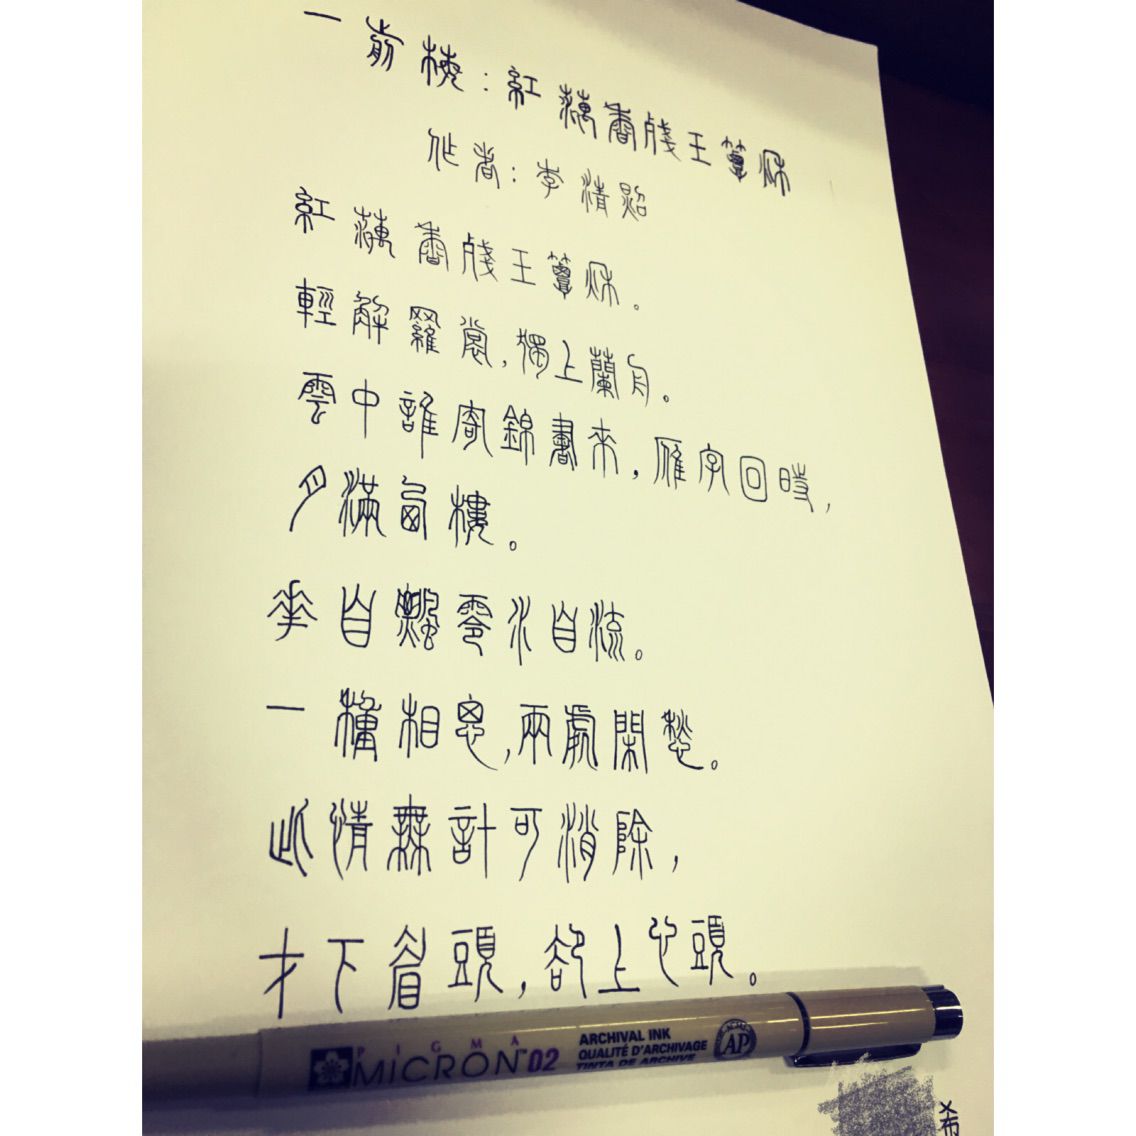 一剪梅：紅藕香殘玉簟秋
作者：李清照
紅藕香殘玉簟秋。
輕解羅裳，獨上蘭舟。
雲中誰寄錦書來，雁字回時，
月滿西樓。
花自飄零水自流。
一種相思，兩處閑愁。
此情無計可消除，
才下眉頭，卻上心頭。
PIGMA
MICRON™ 02
ARCHIVAL INK
QUALITÉ D'ARCHIVAGE
TINTA DE ARCHIVE
AP
希